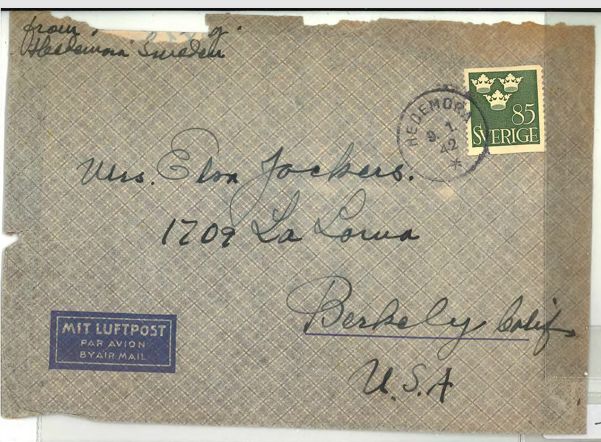 from
Hedemora Sweden
HEDEMORA
9. 1.
42
85
SVERIGE
Mrs. Elsa Jockers.
1709 La Loma
Berkely Calif
U.S.A
MIT LUFTPOST
PAR AVION
BY AIR MAIL